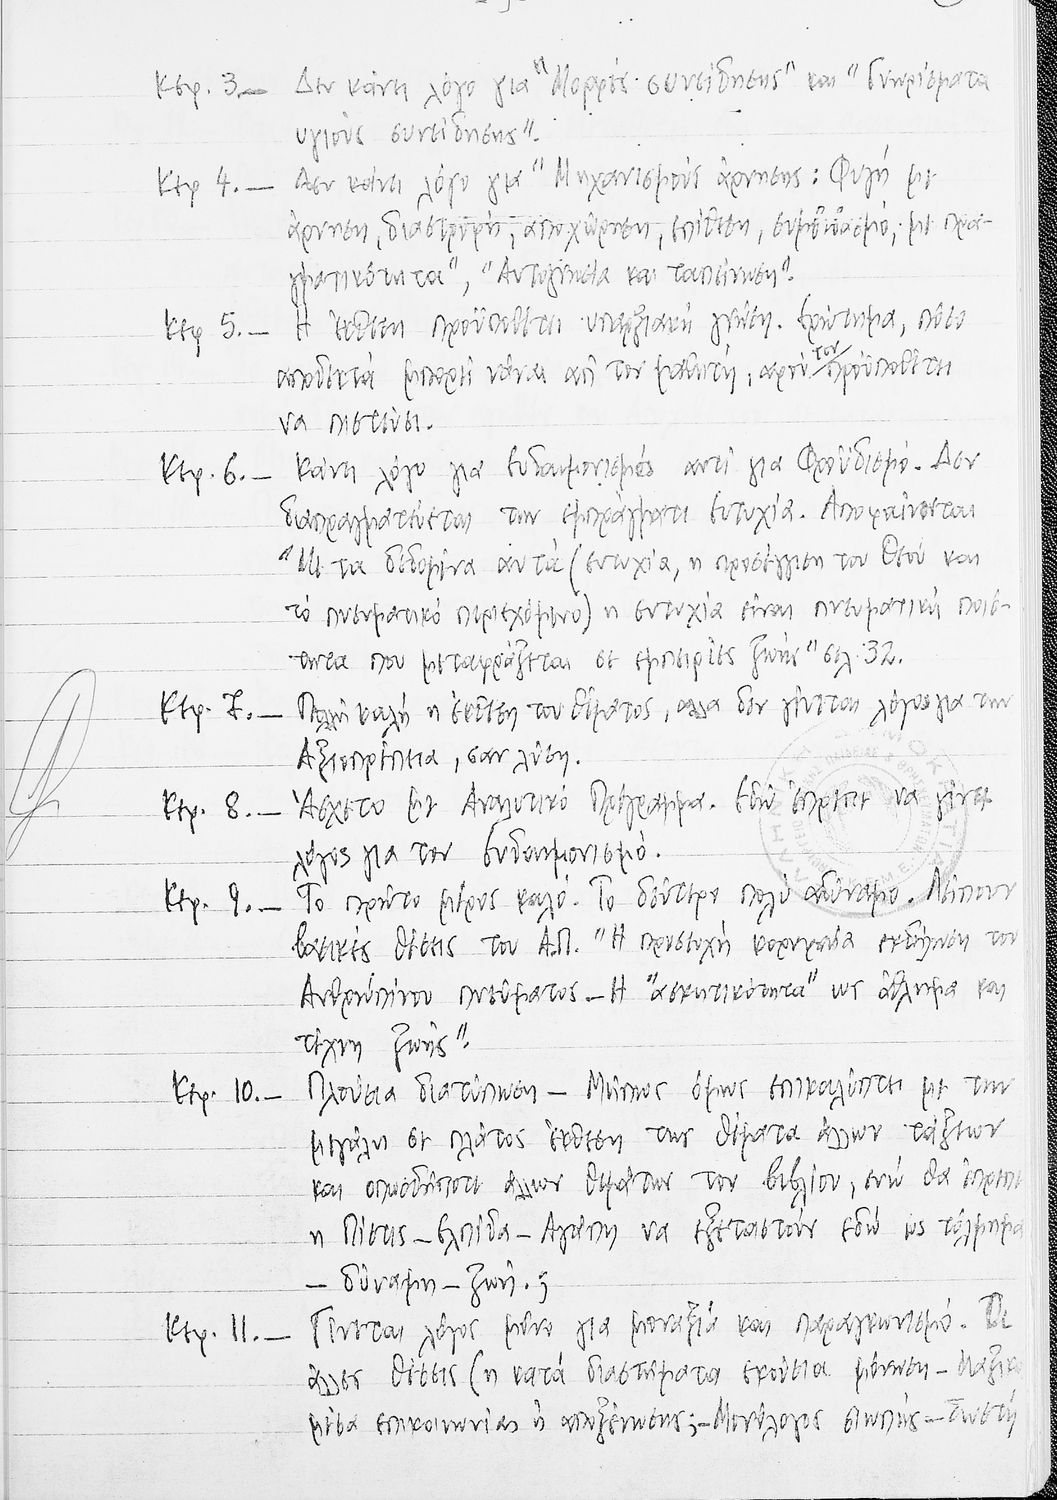 Κεφ. 3.— Δεν κάνει λόγο για "Μορφές συνείδησης" και "Γνωρίσματα
υγιούς συνείδησης".
Κεφ 4.— Δεν κάνει λόγο για "Μηχανισμούς άρνησης: Φυγή με
άρνηση, διαστροφή, αποχώρηση, επίθεση, συμβιβασμό, με πρα-
γματικότητα", "Αυτογνωσία και ταπείνωση".
Κεφ 5.— Η έκθεση προϋποθέτει υπαρξιακή γνώση. Ερώτημα, πόσο
αποδεκτά μπορεί νάναι απ τον μαθητή, αφού τον προϋποθέτει
να πιστεύει.
Κεφ. 6.— Κάνει λόγο για Ευδαιμονισμό αντί για Φροϋδισμό. Δεν
διαπραγματεύεται την έμπράγματι ευτυχία. Αποφαίνεται
"Με τα δεδομένα αυτά (ευτυχία, η προσέγγιση του Θεού και
τό πνευματικό περιεχόμενό) η ευτυχία είναι πνευματική ποιό-
τητα που μεταφράζεται σε εμπειρίες ζωής" σελ. 32.
Κεφ. 7.— Πολλή καλή η έκθεση του θέματος, αλλα δεν γίνεται λόγος για την
Αξιοπρέπεια, σαν λύση.
Κεφ. 8.— Άσχετο με Αναλυτικό Πρόγραμμα. Εδώ έπρεπε να γίνει
λόγος για τον Ευδαιμονισμό.
Κεφ. 9.— Το πρώτο μέρος καλό. Το δεύτερο πολύ αδύναμο. Λείπουν
βασικές θέσεις του Α.Π. "Η προσευχή κορυφαία εκδήλωση του
Ανθρώπινου πνεύματος.— Η "ασκητικότητα" ως άθλημα και
τέχνη ζωής".
Κεφ. 10.— Πλούσια διατύπωση — Μήπως όμως επικαλύπτει με την
μεγάλη σε πλάτος έκθεση της θέματα άλλων τάξεων
και οπωσδήποτε άλλων θεμάτων του βιβλίου, ενώ θα έπρεπε
η Πίστις – Ελπίδα – Αγάπη να εξεταστούν εδώ ως τόλμημα
– δύναμη – ζωή. ;
Κεφ. 11.— Γίνεται λόγος μόνο για μοναξιά και παραγκωνισμό. Οι
άλλες θέσεις (η κατά διαστήματα εκούσια μόνωση – Μαζικά
μέσα επικοινωνίας ή αποξένωσης; – Μονόλογος σιωπής – Σωστή